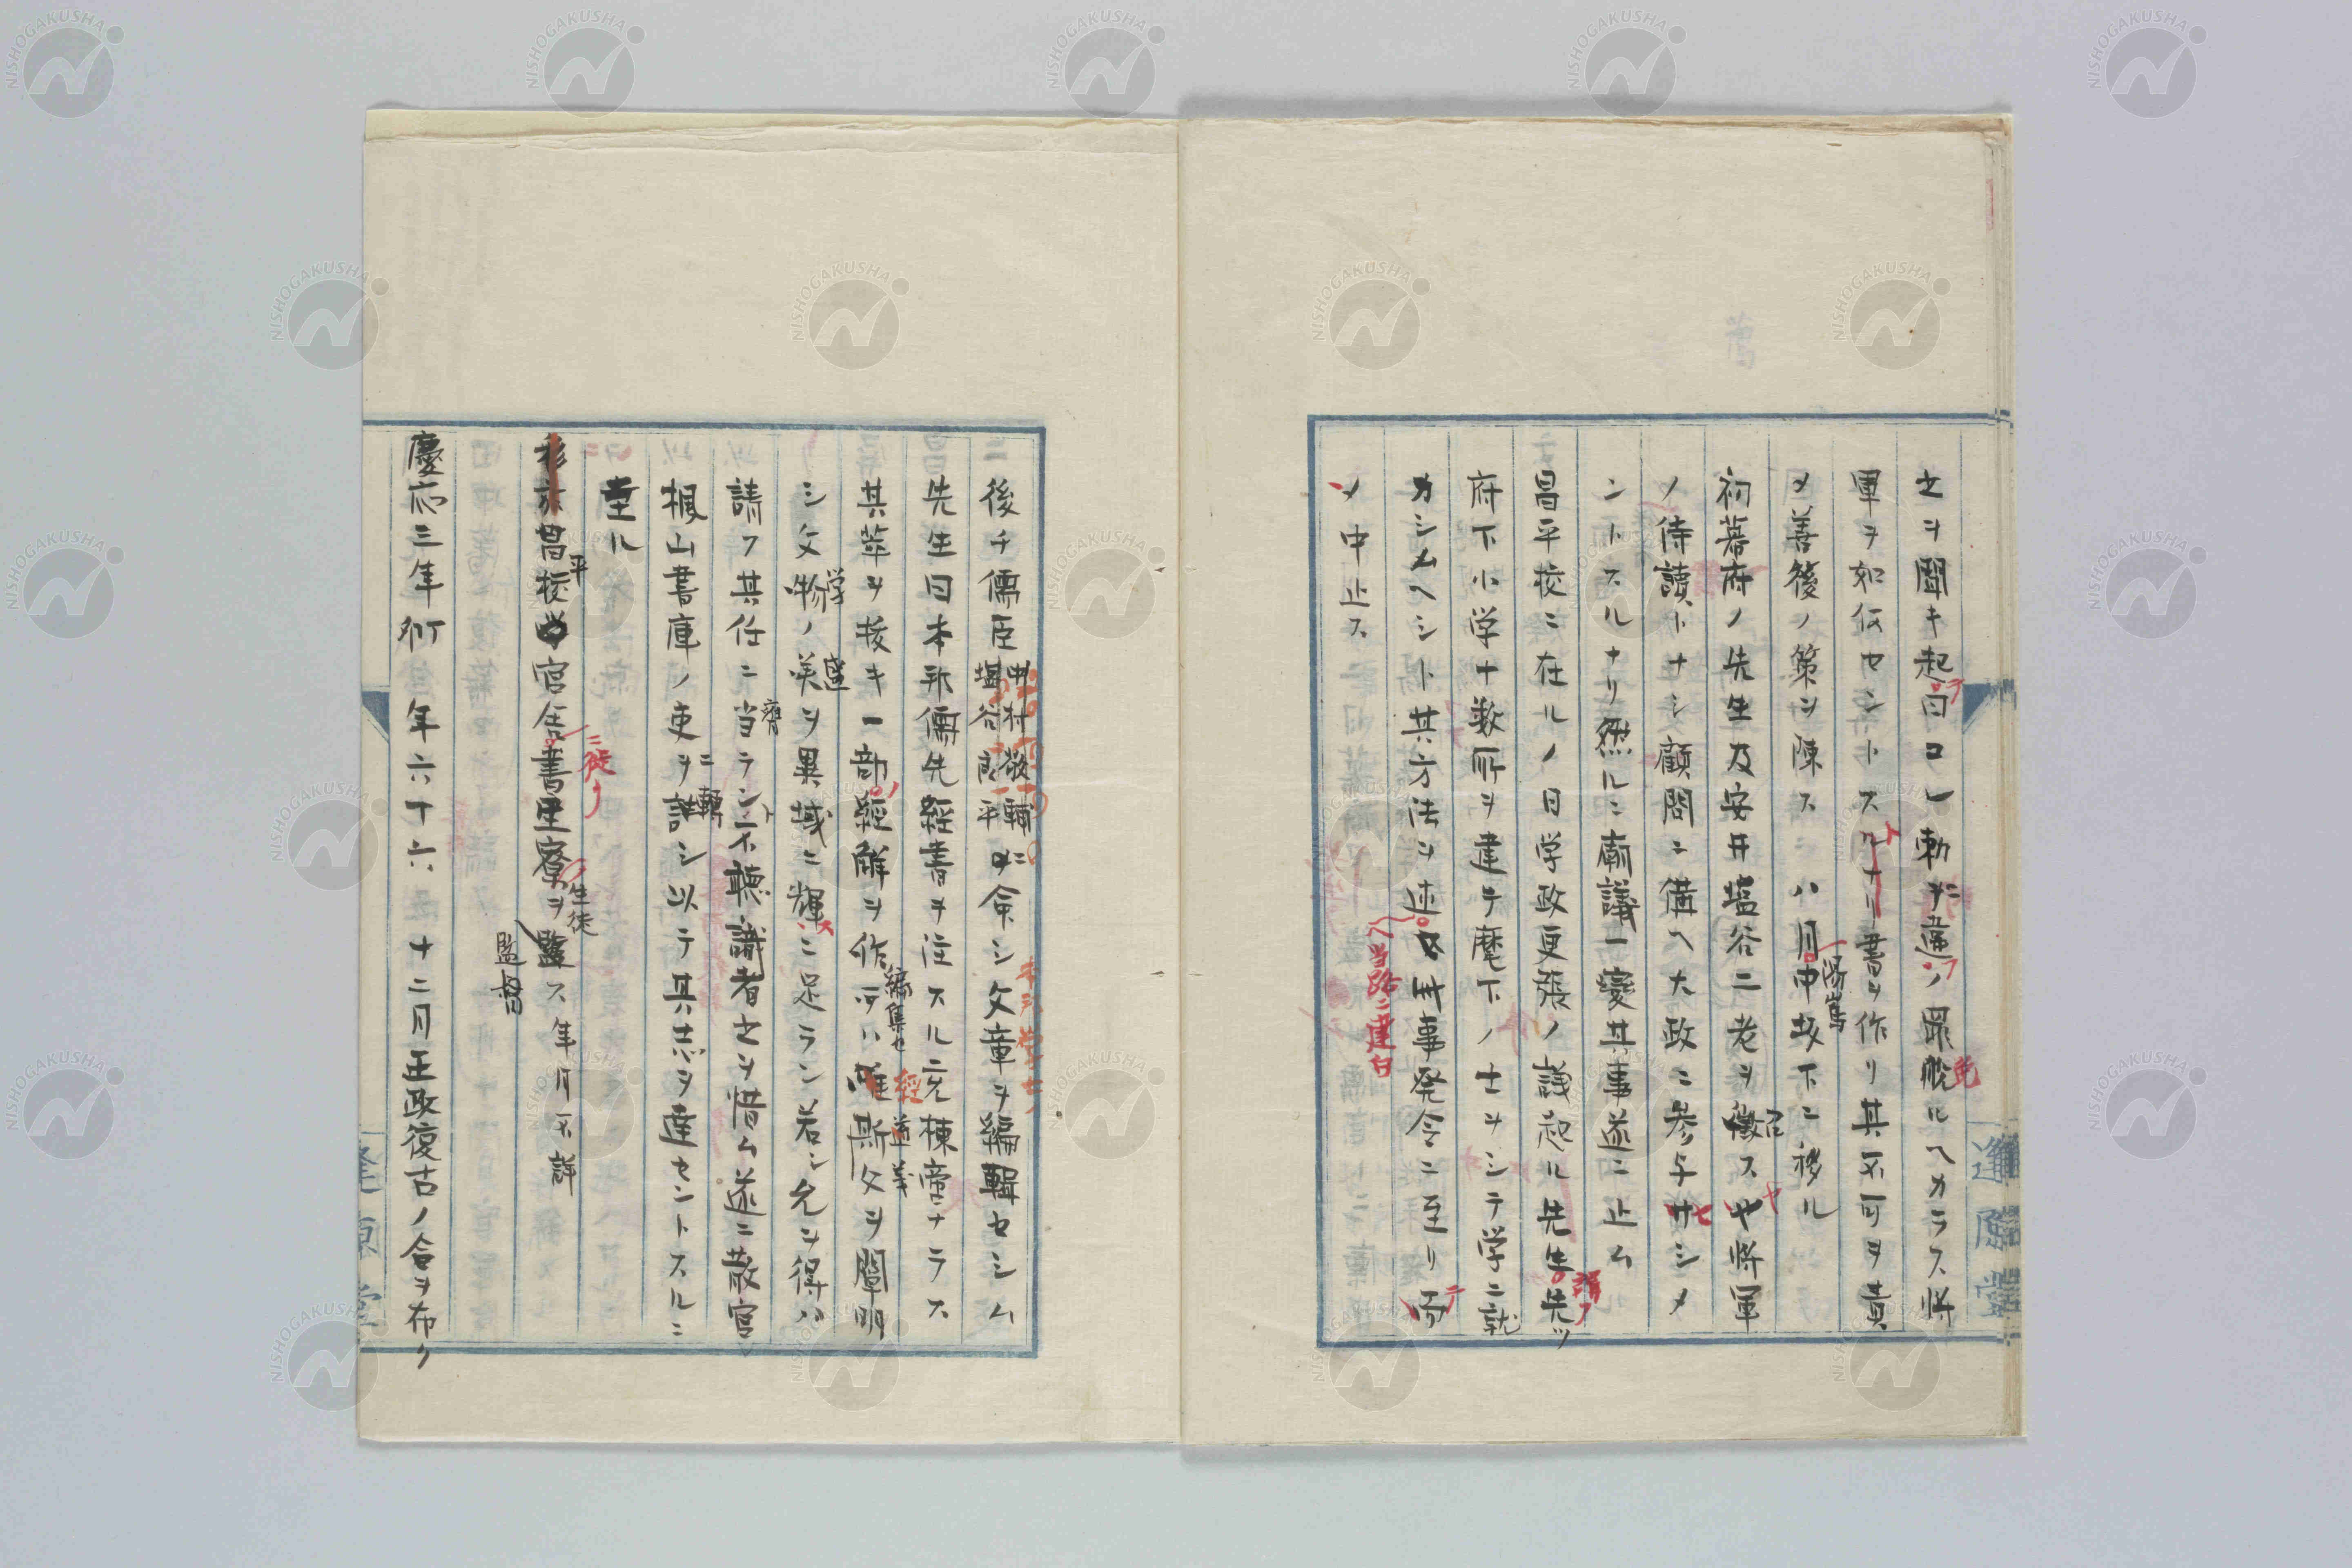 之ヲ聞キ起テ曰コレ勅ニ違フノ罪免ルヘカラス将
軍ヲ如何セントスト書ヲ作リ其不可ヲ責
メ善後ノ策ヲ陳ス 八月中坂下ニ移ル
初幕府ノ先生及安井塩谷二老ヲ徴スヤ将軍
召
ノ侍讀トナシ顧問ニ備ヘ大政ニ参与セシメ
ントスルナリ然ルニ廟議一変其事遂ニ止ム
昌平校ニ在ルノ日学政更張ノ議起ル先生先ツ
謂フ
府下小学十数所ヲ建テ麾下ノ士ヲシテ学ニ就
カシムヘシト其方法ヲ述
ヘ当路ニ建白
此事発令ニ至リテ
中止ス
後チ儒臣
中村敬輔
塩谷良平
ニ命シ文章ヲ編輯セシム
先生曰本邦儒先経書ヲ注スル充棟啻ナラス
其萃ヲ抜キ一部ノ経解ヲ作
編集セ
ハ唯斯文ヲ闡明
経
道義
シ文物ノ美ヲ異域ニ輝スニ足ラン若シ允ヲ得ハ
学
盛
請フ其任ニ当ラント不聴識者之ヲ惜ム遂ニ散官
楓山書庫ノ吏ニ轉シ以テ其志ヲ達セントスルニ
至ル
昌平校官舎
ニ徙リ
書生寮ヲ監ス 年月不詳
生徒
監督
慶応三年 年六十六 十二月王政復古ノ令ヲ布ク
逢原堂
逢原堂
NISHOGAKUSHA